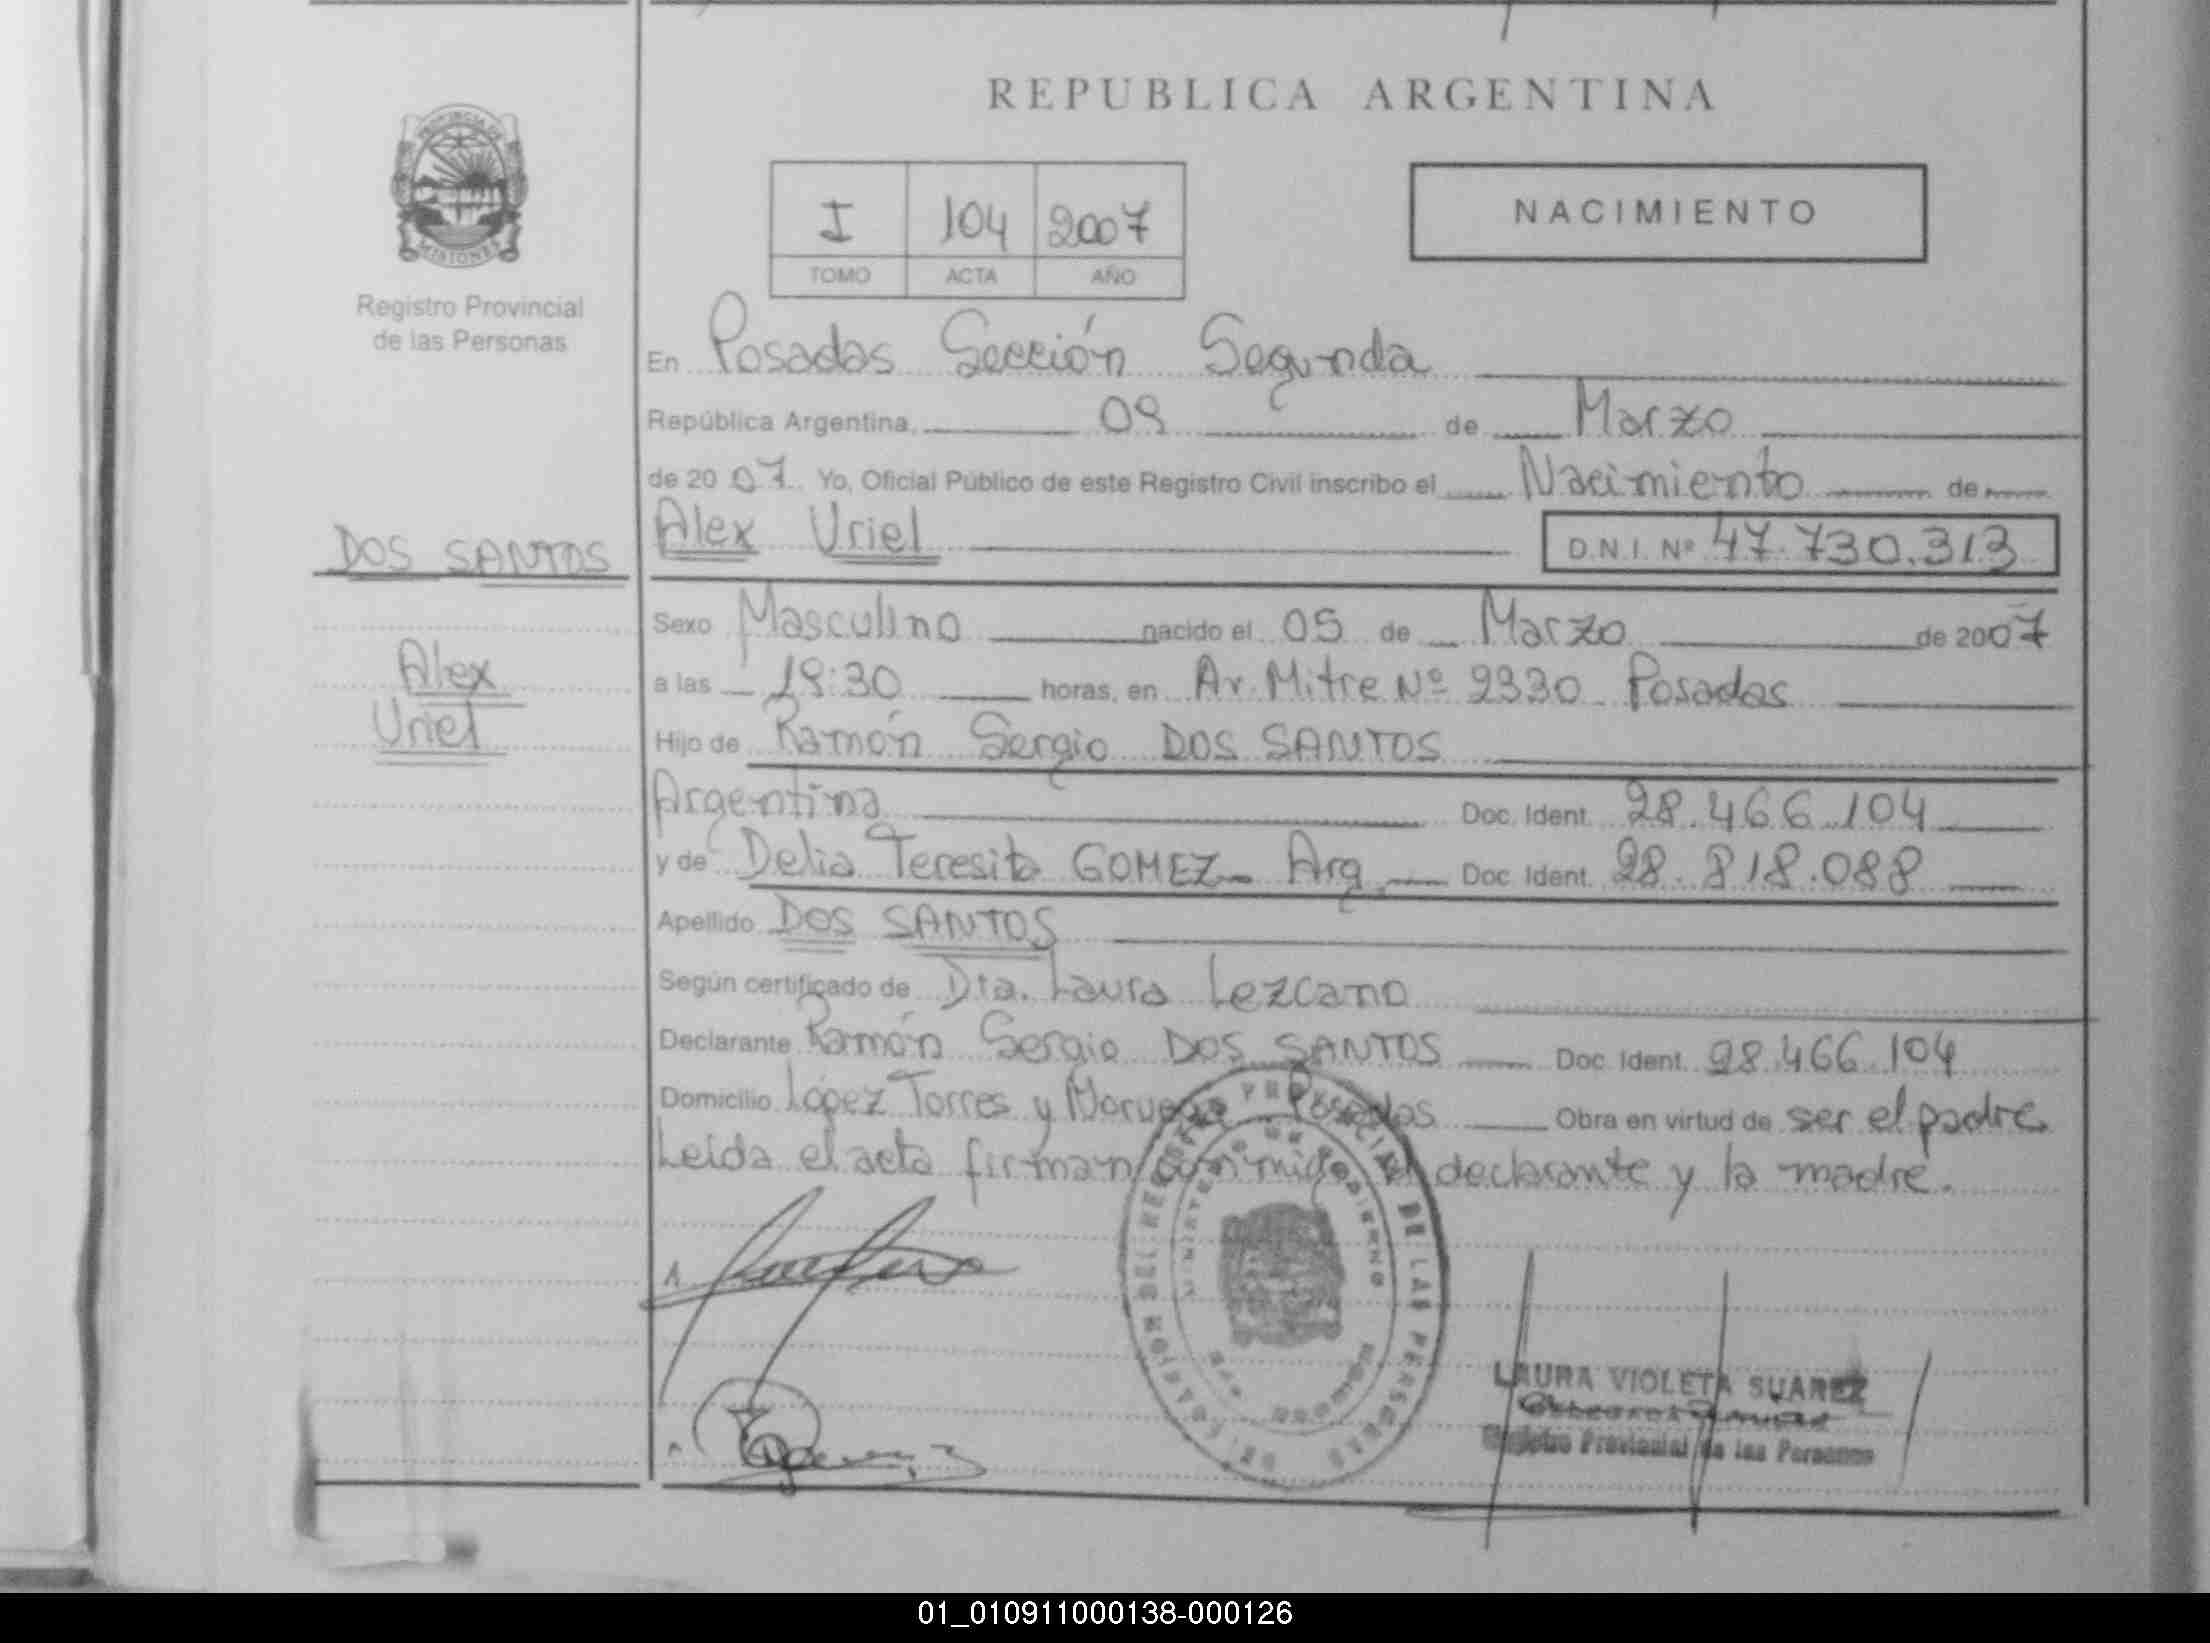 REPUBLICA ARGENTINA
PROVINCIA DE
MISIONES
Registro Provincial
de las Personas
I 104 2007
TOMO ACTA AÑO
NACIMIENTO
En Posadas Sección Segunda
República Argentina, 09 de Marzo
de 20 07 Yo, Oficial Público de este Registro Civil inscribo el Nacimiento de
DOS SANTOS
Alex Uriel D.N.I. Nº 47.730.313
Sexo Masculino nacido el 05 de Marzo de 2007
Alex
Uriel
a las 19:30 horas, en Av. Mitre Nº 2330 Posadas
Hijo de Ramón Sergio DOS SANTOS
Argentina Doc. Ident. 28.466.104
y de Delia Teresita GOMEZ Arg. Doc. Ident. 28.818.088
Apellido DOS SANTOS
Según certificado de Dra. Laura Lezcano
Declarante Ramón Sergio DOS SANTOS Doc. Ident. 28.466.104
Domicilio López Torres y Posadas Obra en virtud de ser el padre
Leída el acta firman conmigo el declarante y la madre.
LAURA VIOLETA SUAREZ
Registro Provincial de las Personas
01_010911000138-000126